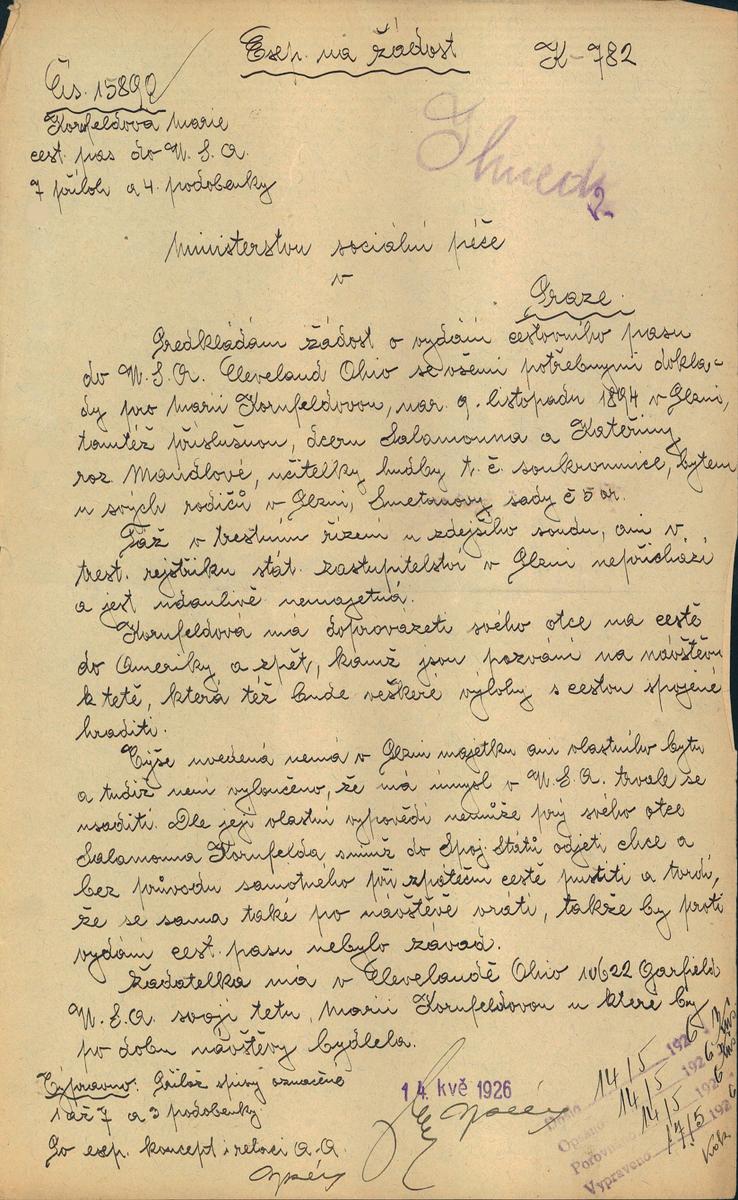 Exp. na žádost K-782
Čís. 15892
Kornfeldová Marie
cest. pas do U.S.A.
7 příloh a 4. podobenky
Ihned
Ministerstvu sociální péče
v
Praze.
Předkládám žádost o vydání cestovního pasu
do U.S.A. Cleveland Ohio se všemi potřebnými dokla-
dy pro Marii Kornfeldovou, nar. 9. listopadu 1894 v Plzni,
tamtéž příslušnou, dceru Salamouna a Kateřiny
roz. Mandlové, učitelky hudby t. č. soukromnice, bytem
u svých rodičů v Plzni, Smetanovy sady č 5 ar.
Táž v trestním řízení u zdejšího soudu, ani v
trest. rejstříku stát. zastupitelství v Plzni nepřichází
a jest údanlivě nemajetná.
Kornfeldová má doprovazeti svého otce na cestě
do Ameriky a zpět, kamž jsou pozváni na návštěvu
k tetě, která též bude veškeré výlohy s cestou spojené
hraditi.
Výše uvedená nemá v Plzni majetku ani vlastního bytu
a tudíž není vyloučeno, že má úmysl v U.S.A. trvale se
usaditi. Dle její vlastní výpovědi nemůže prý svého otce
Salamouna Kornfelda s nímž do Spoj. Států odjeti chce a
bez průvodu samotného při zpáteční cestě pustiti a tvrdí,
že se sama také po návštěvě vrátí, takže by proti
vydání cest. pasu nebylo závad.
Žadatelka má v Clevelandě Ohio 10622 Garfield
U.S.A. svoji tetu, Marii Kornfeldovou u které by
po dobu návštěvy bydlela.
Výpravno: Přilož spisy označené
1 až 7 a 3 podobenky.
Po exp. koncept i relaci a.a.
14 kvě 1926
Došlo 14/5 1926
Opsáno 14/5 1926
Porovnáno 14/5 192
Vypraveno 17/5 1926